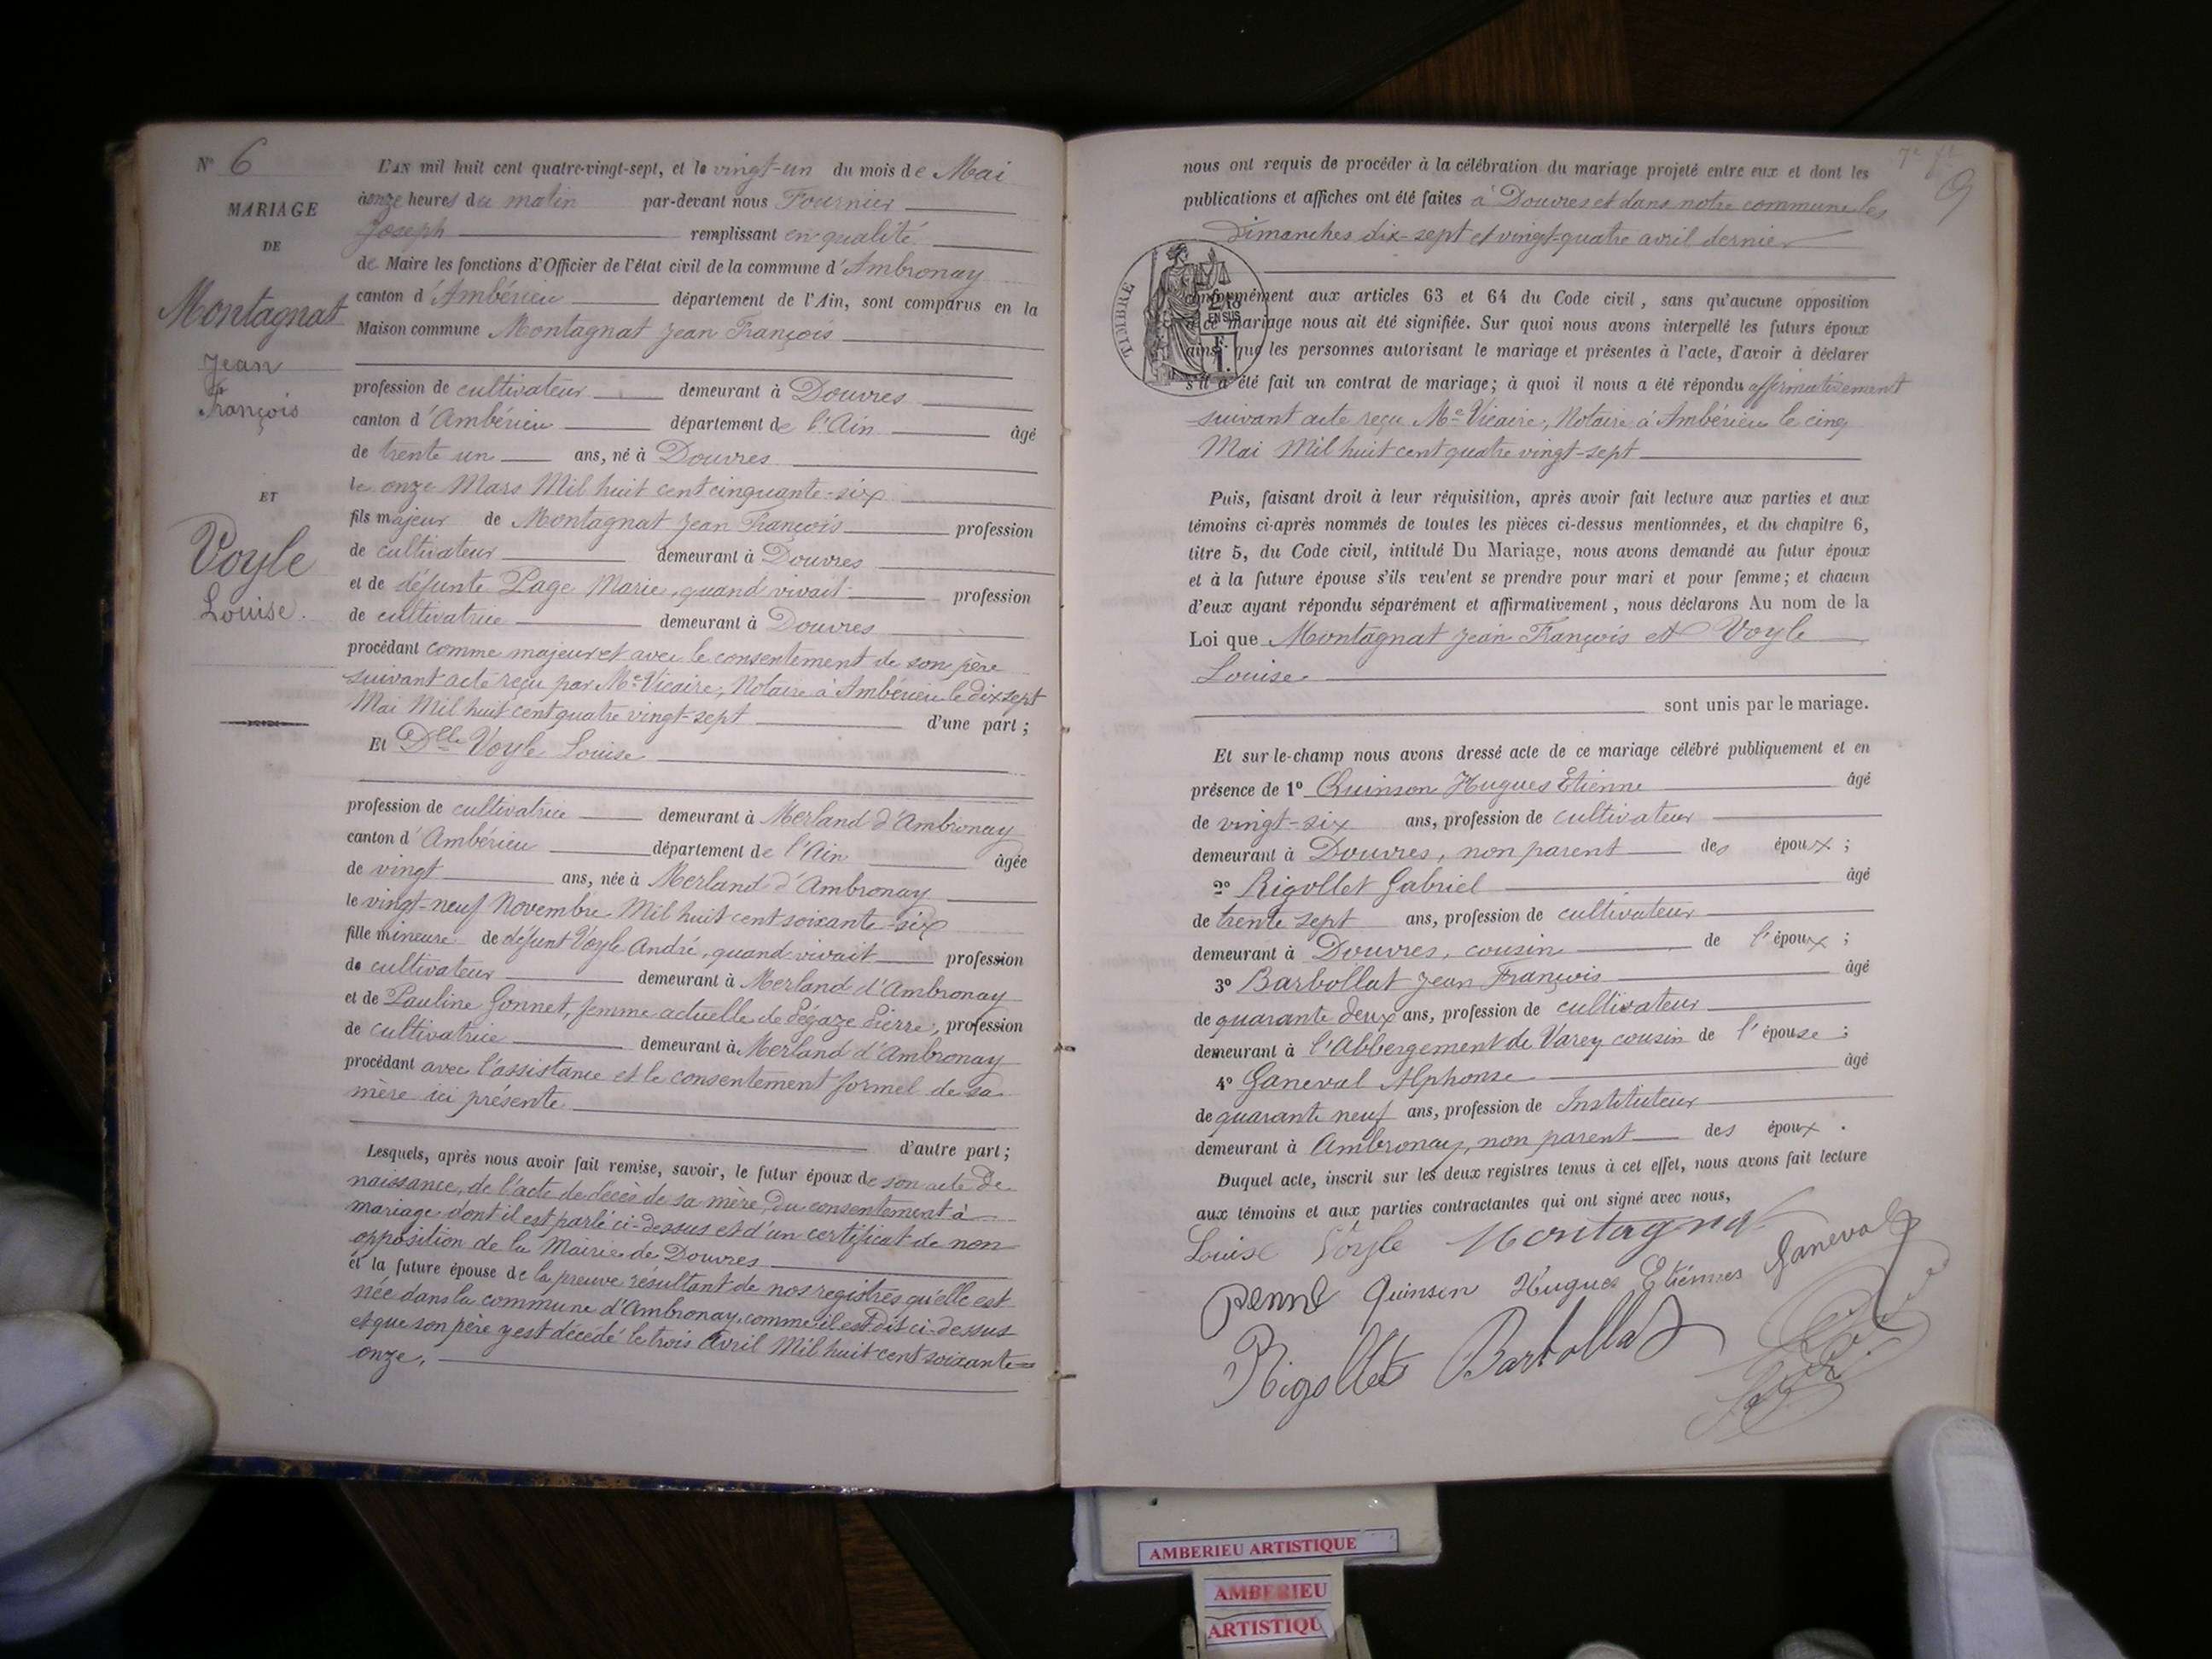 N° 6
MARIAGE
DE
Montagnat
Jean
François
ET
Voyle
Louise.
L'AN mil huit cent quatre-vingt-sept, et le vingt-un du mois de Mai
à onze heures du matin par-devant nous Fournier
Joseph remplissant en qualité
de Maire les fonctions d'Officier de l'état civil de la commune d'Ambronay
canton d'Ambérieu département de l'Ain, sont comparus en la
Maison commune Montagnat Jean François
profession de cultivateur demeurant à Douvres
canton d'Ambérieu département de l'Ain âgé
de trente un ans, né à Douvres
le onze Mars Mil huit cent cinquante-six
fils majeur de Montagnat Jean François profession
de cultivateur demeurant à Douvres
et de défunte Page Marie, quand vivait profession
de cultivatrice demeurant à Douvres
procédant comme majeur et avec le consentement de son père
suivant acte reçu par Me Vicaire, Notaire à Ambérieu le dix sept
Mai Mil huit cent quatre vingt-sept d'une part ;
Et Dlle Voyle Louise
profession de cultivatrice demeurant à Merland d'Ambronay
canton d'Ambérieu département de l'Ain âgée
de vingt ans, née à Merland d'Ambronay
le vingt-neuf Novembre Mil huit cent soixante-six
fille mineure de défunt Voyle André, quand vivait profession
de cultivateur demeurant à Merland d'Ambronay
et de Pauline Gonnet, femme actuelle de Pégaze Pierre, profession
de cultivatrice demeurant à Merland d'Ambronay
procédant avec l'assistance et le consentement formel de sa
mère ici présente
d'autre part ;
Lesquels, après nous avoir fait remise, savoir, le futur époux de son acte de
naissance, de l'acte de décès de sa mère, du consentement à
mariage dont il est parlé ci-dessus et d'un certificat de non
opposition de la Mairie de Douvres
et la future épouse de la preuve résultant de nos registres qu'elle est
née dans la commune d'Ambronay comme il est dit ci-dessus
et que son père y est décédé le trois Avril Mil huit cent soixante=
onze,
7e ft
9
nous ont requis de procéder à la célébration du mariage projeté entre eux et dont les
publications et affiches ont été faites à Douvres et dans notre commune les
Dimanches dix-sept et vingt-quatre avril dernier
TIMBRE
2/10
EN SUS
conformément aux articles 63 et 64 du Code civil, sans qu'aucune opposition
à ce mariage nous ait été signifiée. Sur quoi nous avons interpellé les futurs époux
ainsi que les personnes autorisant le mariage et présentes à l'acte, d'avoir à déclarer
s'il a été fait un contrat de mariage ; à quoi il nous a été répondu affirmativement
suivant acte reçu Me Vicaire, Notaire à Ambérieu le cinq
Mai Mil huit cent quatre vingt-sept
Puis, faisant droit à leur réquisition, après avoir fait lecture aux parties et aux
témoins ci-après nommés de toutes les pièces ci-dessus mentionnées, et du chapitre 6,
titre 5, du Code civil, intitulé Du Mariage, nous avons demandé au futur époux
et à la future épouse s'ils veu'ent se prendre pour mari et pour femme ; et chacun
d'eux ayant répondu séparément et affirmativement, nous déclarons Au nom de la
Loi que Montagnat Jean François et Voyle
Louise
sont unis par le mariage.
Et sur-le-champ nous avons dressé acte de ce mariage célébré publiquement et en
présence de 1° Quinson Hugues Etienne âgé
de vingt-six ans, profession de cultivateur
demeurant à Douvres, non parent des époux ;
2° Rigollet Gabriel âgé
de trente sept ans, profession de cultivateur
demeurant à Douvres, cousin de l'époux ;
3° Barbollat Jean François âgé
de quarante deux ans, profession de cultivateur
demeurant à l'Abbergement de Varey cousin de l'épouse ;
4° Ganeval Alphonse âgé
de quarante neuf ans, profession de Instituteur
demeurant à Ambronay, non parent des époux.
Duquel acte, inscrit sur les deux registres tenus à cet effet, nous avons fait lecture
aux témoins et aux parties contractantes qui ont signé avec nous,
Louise Voyle Montagnat
Quinson Hugues Etiénnes Ganeval
Rigollet Barbollat
AMBERIEU ARTISTIQUE
AMBERIEU
ARTISTIQU